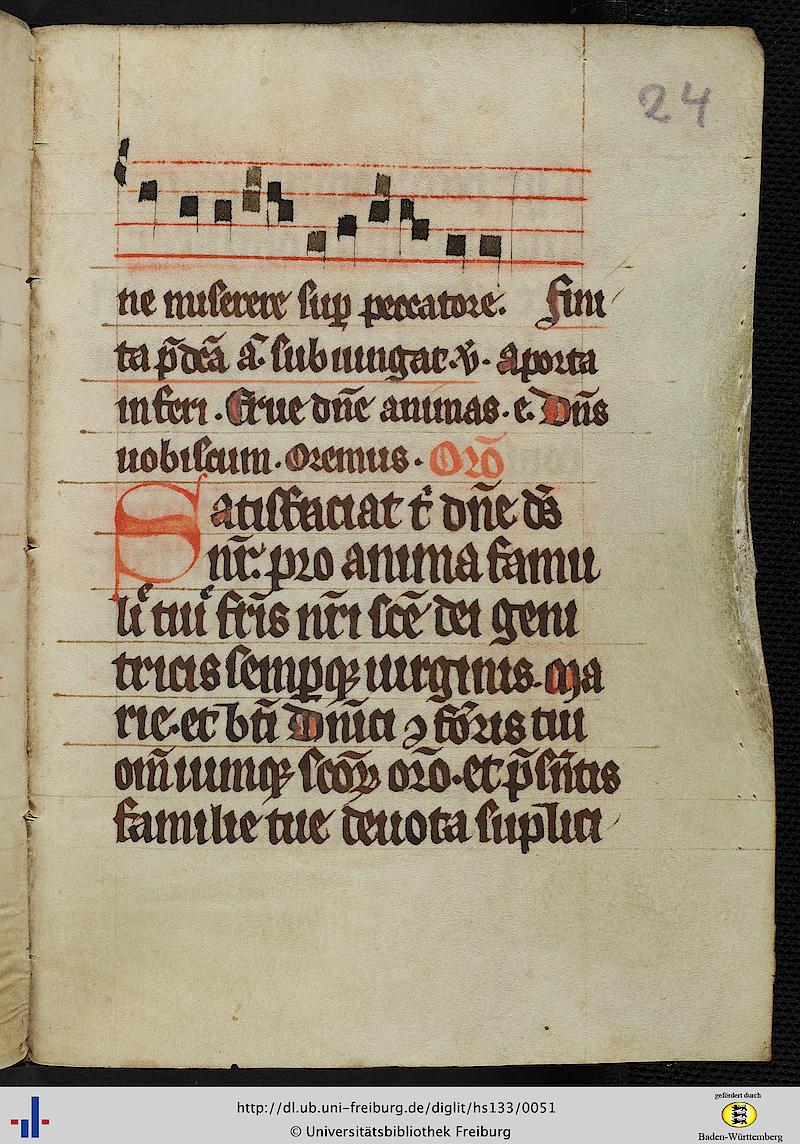 24
ne miserere sup̱ peccatore. Fini
ta p̄dc̄a a̅. subiungat. v̄. Aporta
inferi. Erue dn̄e animas. e. Dn̄s
uobiscum. Oremus. Orō
Satisfaciat t̄ dn̄e ds̄
nr̄. pro anima famu
li tui fr̄is nr̄i scē dei geni
tricis semꝑqꝫ uirginis. Ma
rie. et bt̄i Dnīci ꝯfōris tui
om̄iumqꝫ scōꝝ orō. et p̄sn̄tis
familie tue deuota suplici
http://dl.ub.uni-freiburg.de/diglit/hs133/0051
© Universitätsbibliothek Freiburg
gefördert durch
Baden-Württemberg